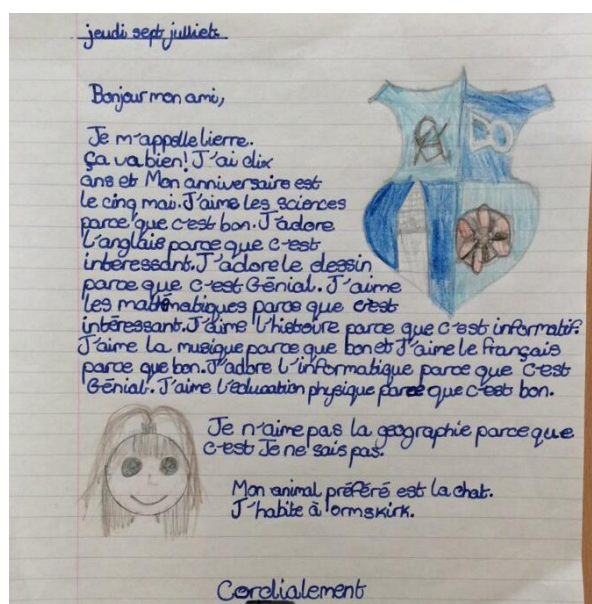 jeudi sept julliet.
Bonjour mon ami,
Je m'appelle Lierre.
Ça va bien! J'ai dix
ans et Mon anniversaire est
le cinq mai. J'aime les sciences
parce que c'est bon. J'adore
l'anglais parce que c'est
intéressant. J'adore le dessin
parce que c'est Génial. J'aime
les mathématiques parce que c'est
intéressant. J'aime l'histoire parce que c'est informatif.
J'aime la musique parce que bon et J'aime le français
parce que bon. J'adore l'informatique parce que c'est
Génial. J'aime l'éducation physique parce que c'est bon.
Je n'aime pas la geographie parce que
c'est Je ne sais pas.
Mon animal préféré est la chat.
J'habite à ormskirk.
Cordialement